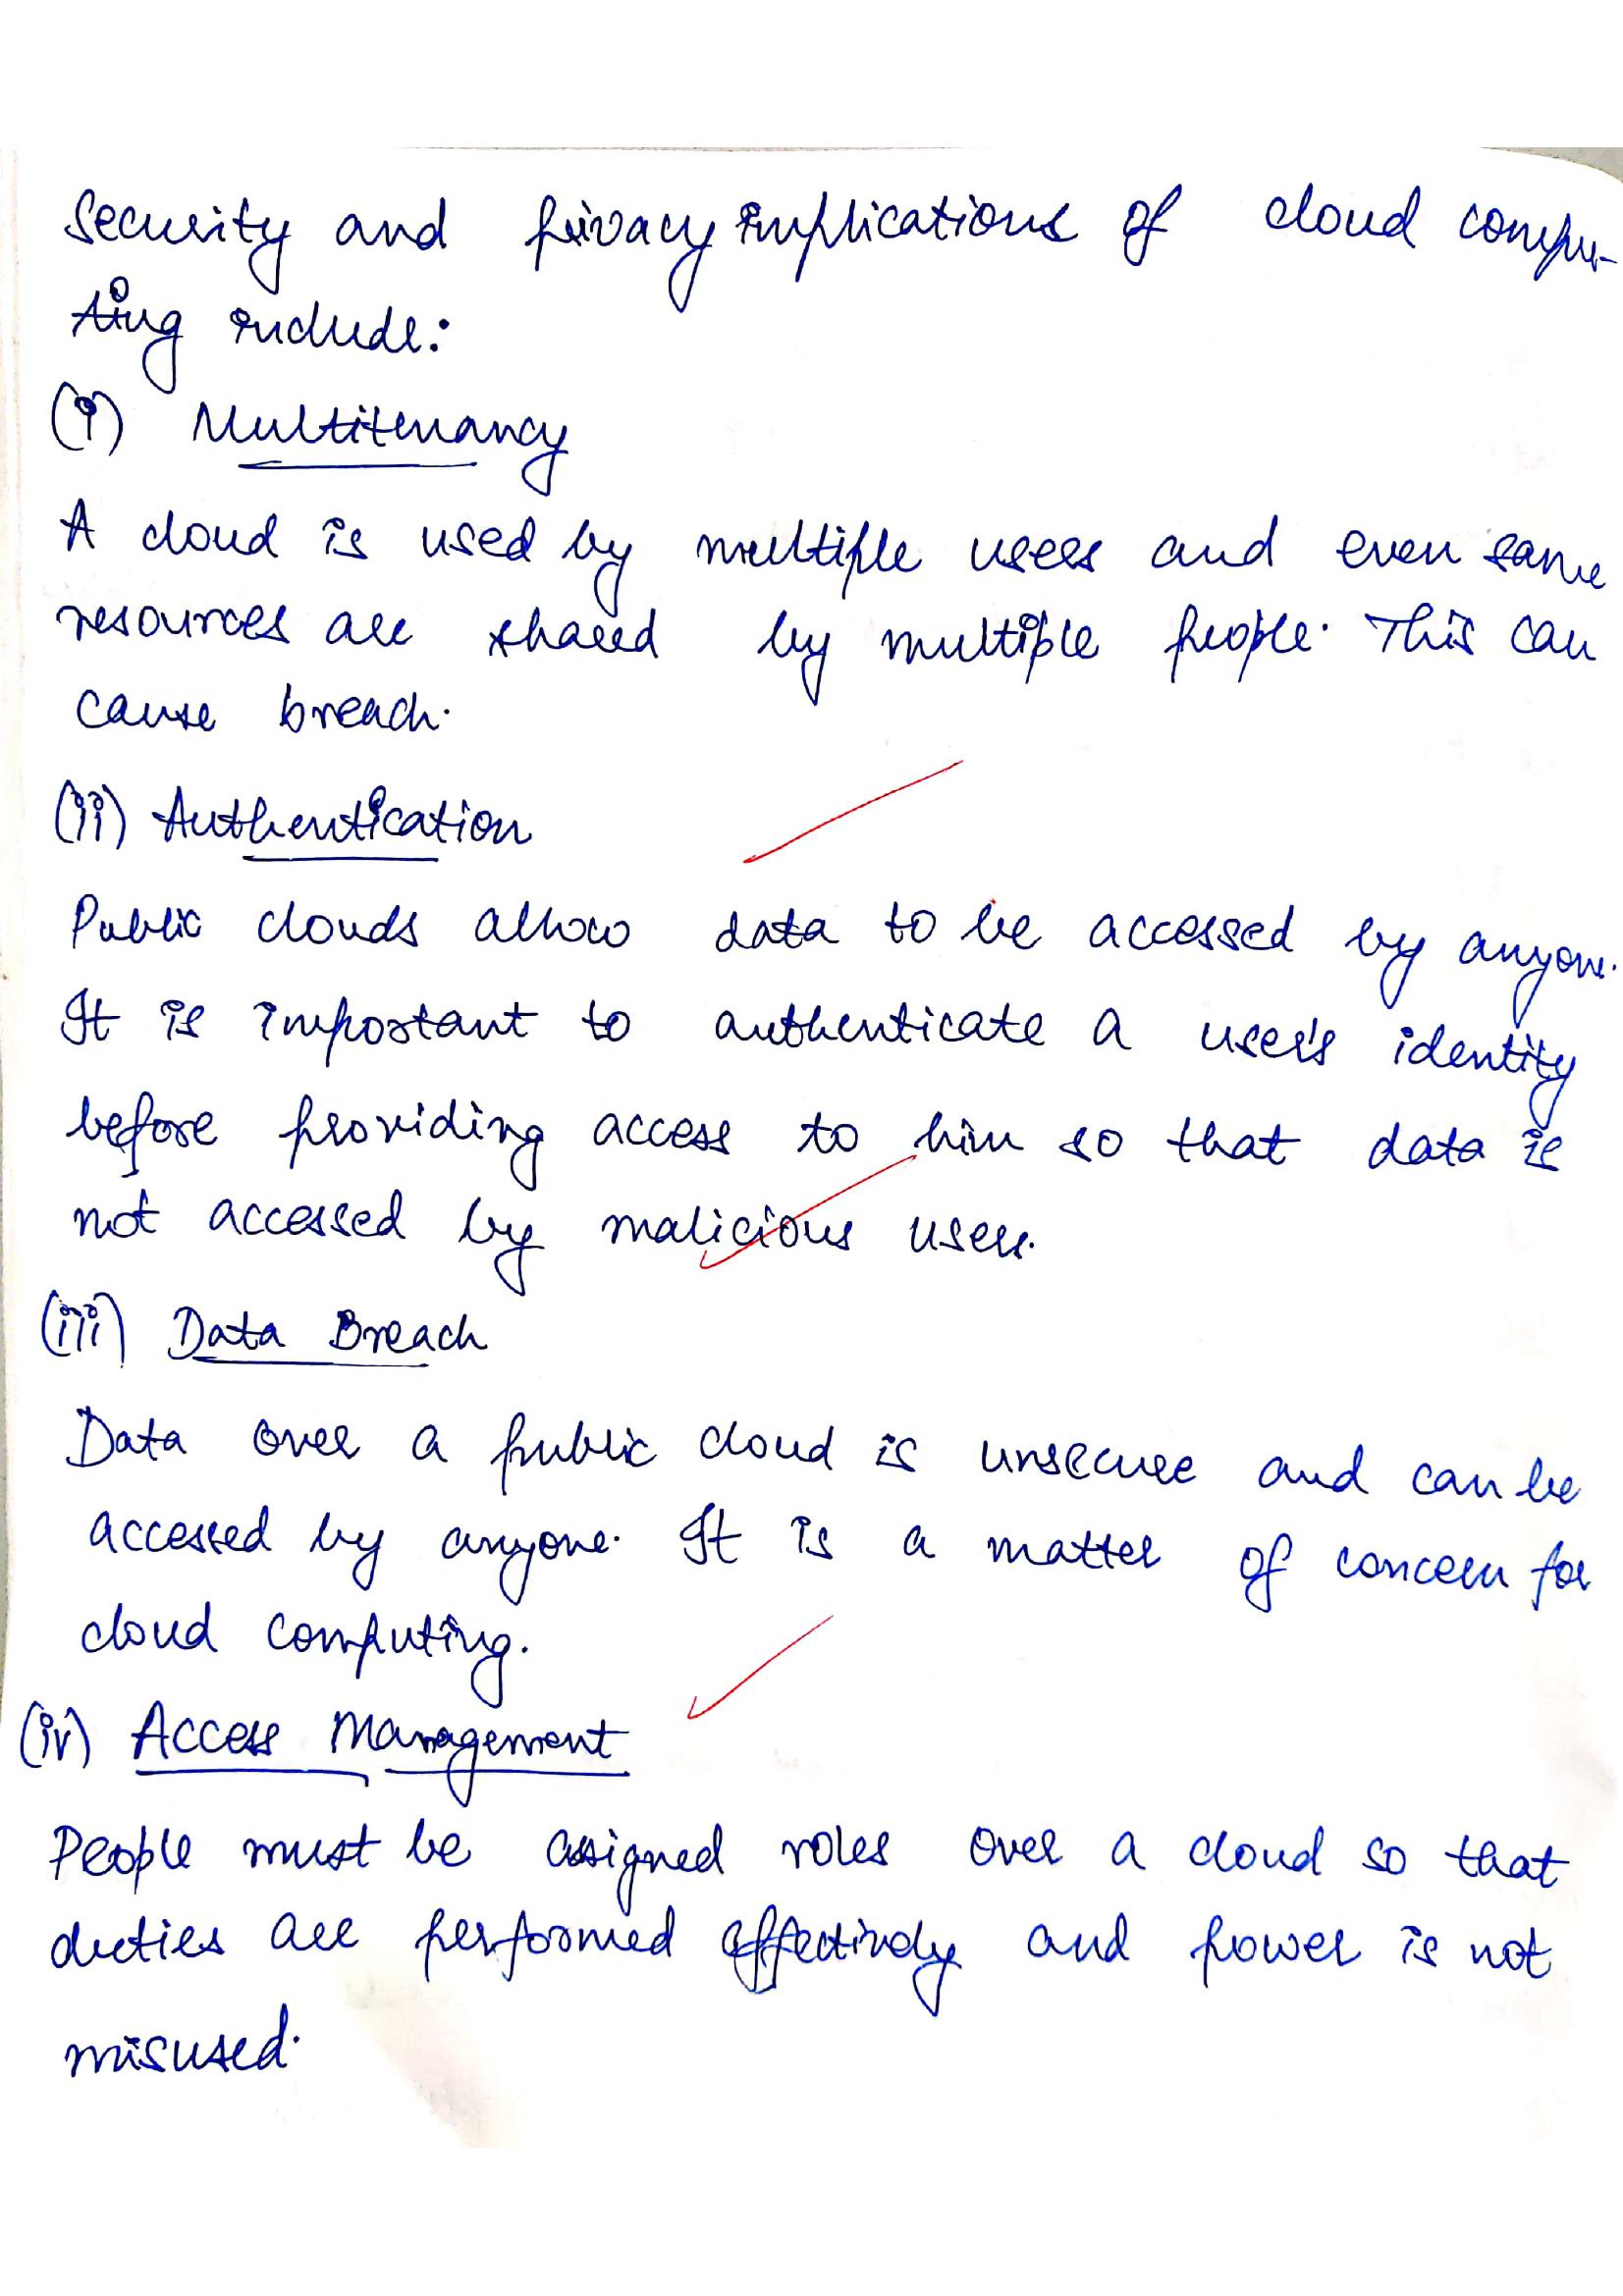 Security and privacy implications of cloud compu-
ting include:
(i) Multitenancy
A cloud is used by multiple users and even same
resources are shared by multiple people. This can
cause breach.
(ii) Authentication
Public clouds allow data to be accessed by anyone.
It is important to authenticate a user's identity
before providing access to him so that data is
not accessed by malicious user.
(iii) Data Breach
Data over a public cloud is unsecure and can be
accessed by anyone. It is a matter of concern for
cloud computing.
(iv) Access Management
People must be assigned roles over a cloud so that
duties are performed effectively and power is not
misused.